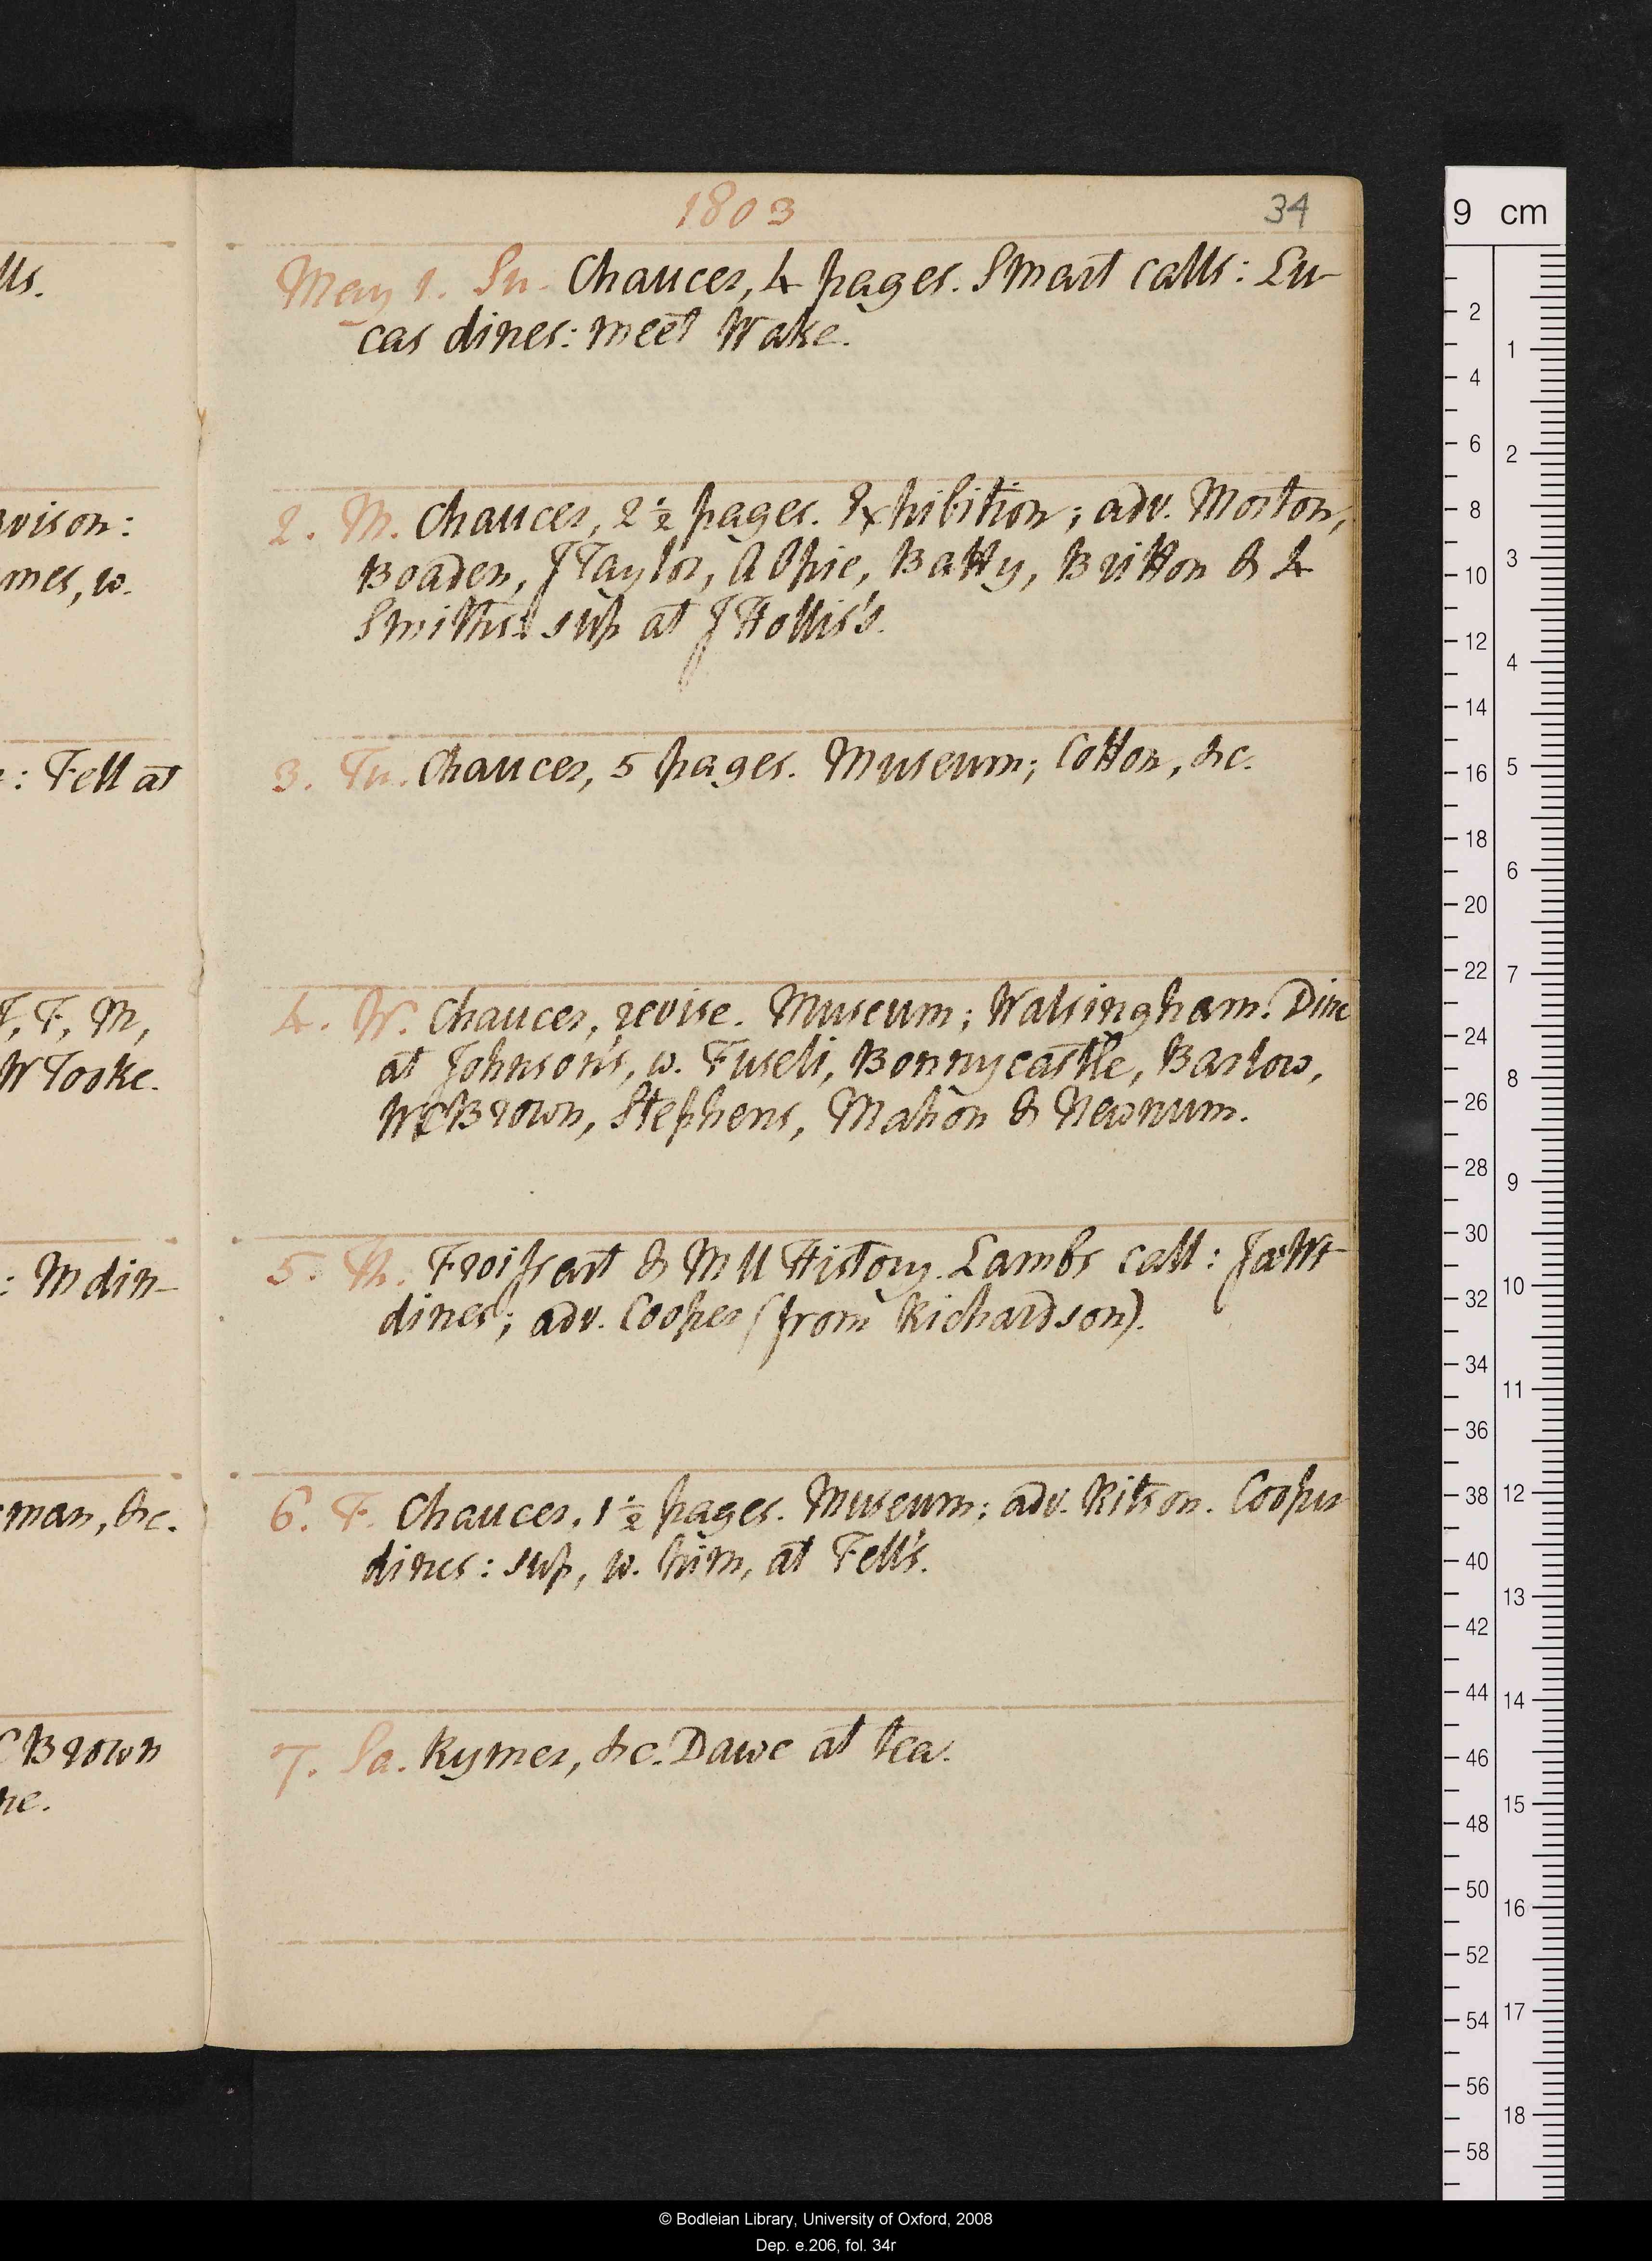 1803
34
May 1. Su. Chaucer, 4 pages. Smart calls: Lu-
cas dines: meet Wake.
2. M. Chaucer, 2½ pages. Exhibition; adv. Morton,
Boaden, J Taylor, Alpie, Batty, Britton & 4
Smiths: sup at J Hollis's.
3. Tu. Chaucer, 5 pages. Museum; Cotton, &c.
4. W. Chaucer, revise. Museum; Walsingham. Dine
at Johnson's, w. Fuseli, Bonnycastle, Barlow,
WCBrown, Stephens, Mahon & Newnum.
5. Th. Froissart & Mll History. Lambs call:
dines; adv. Cooper (from Richardson).
6. F. Chaucer, 1½ pages. Museum; adv. Ritson. Cooper
dines: sup, w. him, at Fell's.
7. Sa. Rymer, &c. Dawe at tea.
lls.
vison:
mes, w.
: Fell at
F, M,
W Tooke.
: M din-
man, &c.
CBrown
9 cm
2
4
6
8
10
12
14
16
18
20
22
24
26
28
30
32
34
36
38
40
42
44
46
48
50
52
54
56
58
1
2
3
4
5
6
7
8
9
10
11
12
13
14
15
16
17
18
© Bodleian Library, University of Oxford, 2008
Dep. e.206, fol. 34r